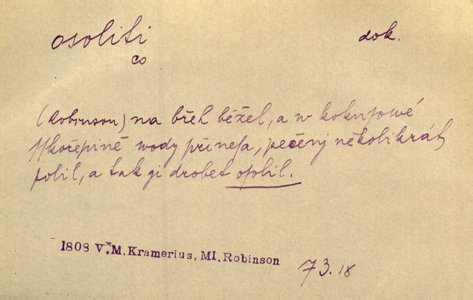 osoliti dok.
co
(Robinson) na břeh běžel, a w kokusowé
sskořepině wody přinesa, pečenj několikrát
polil, a tak gi drobet osolil.
1808 V. M. Kramerius, Ml. Robinson 73.18